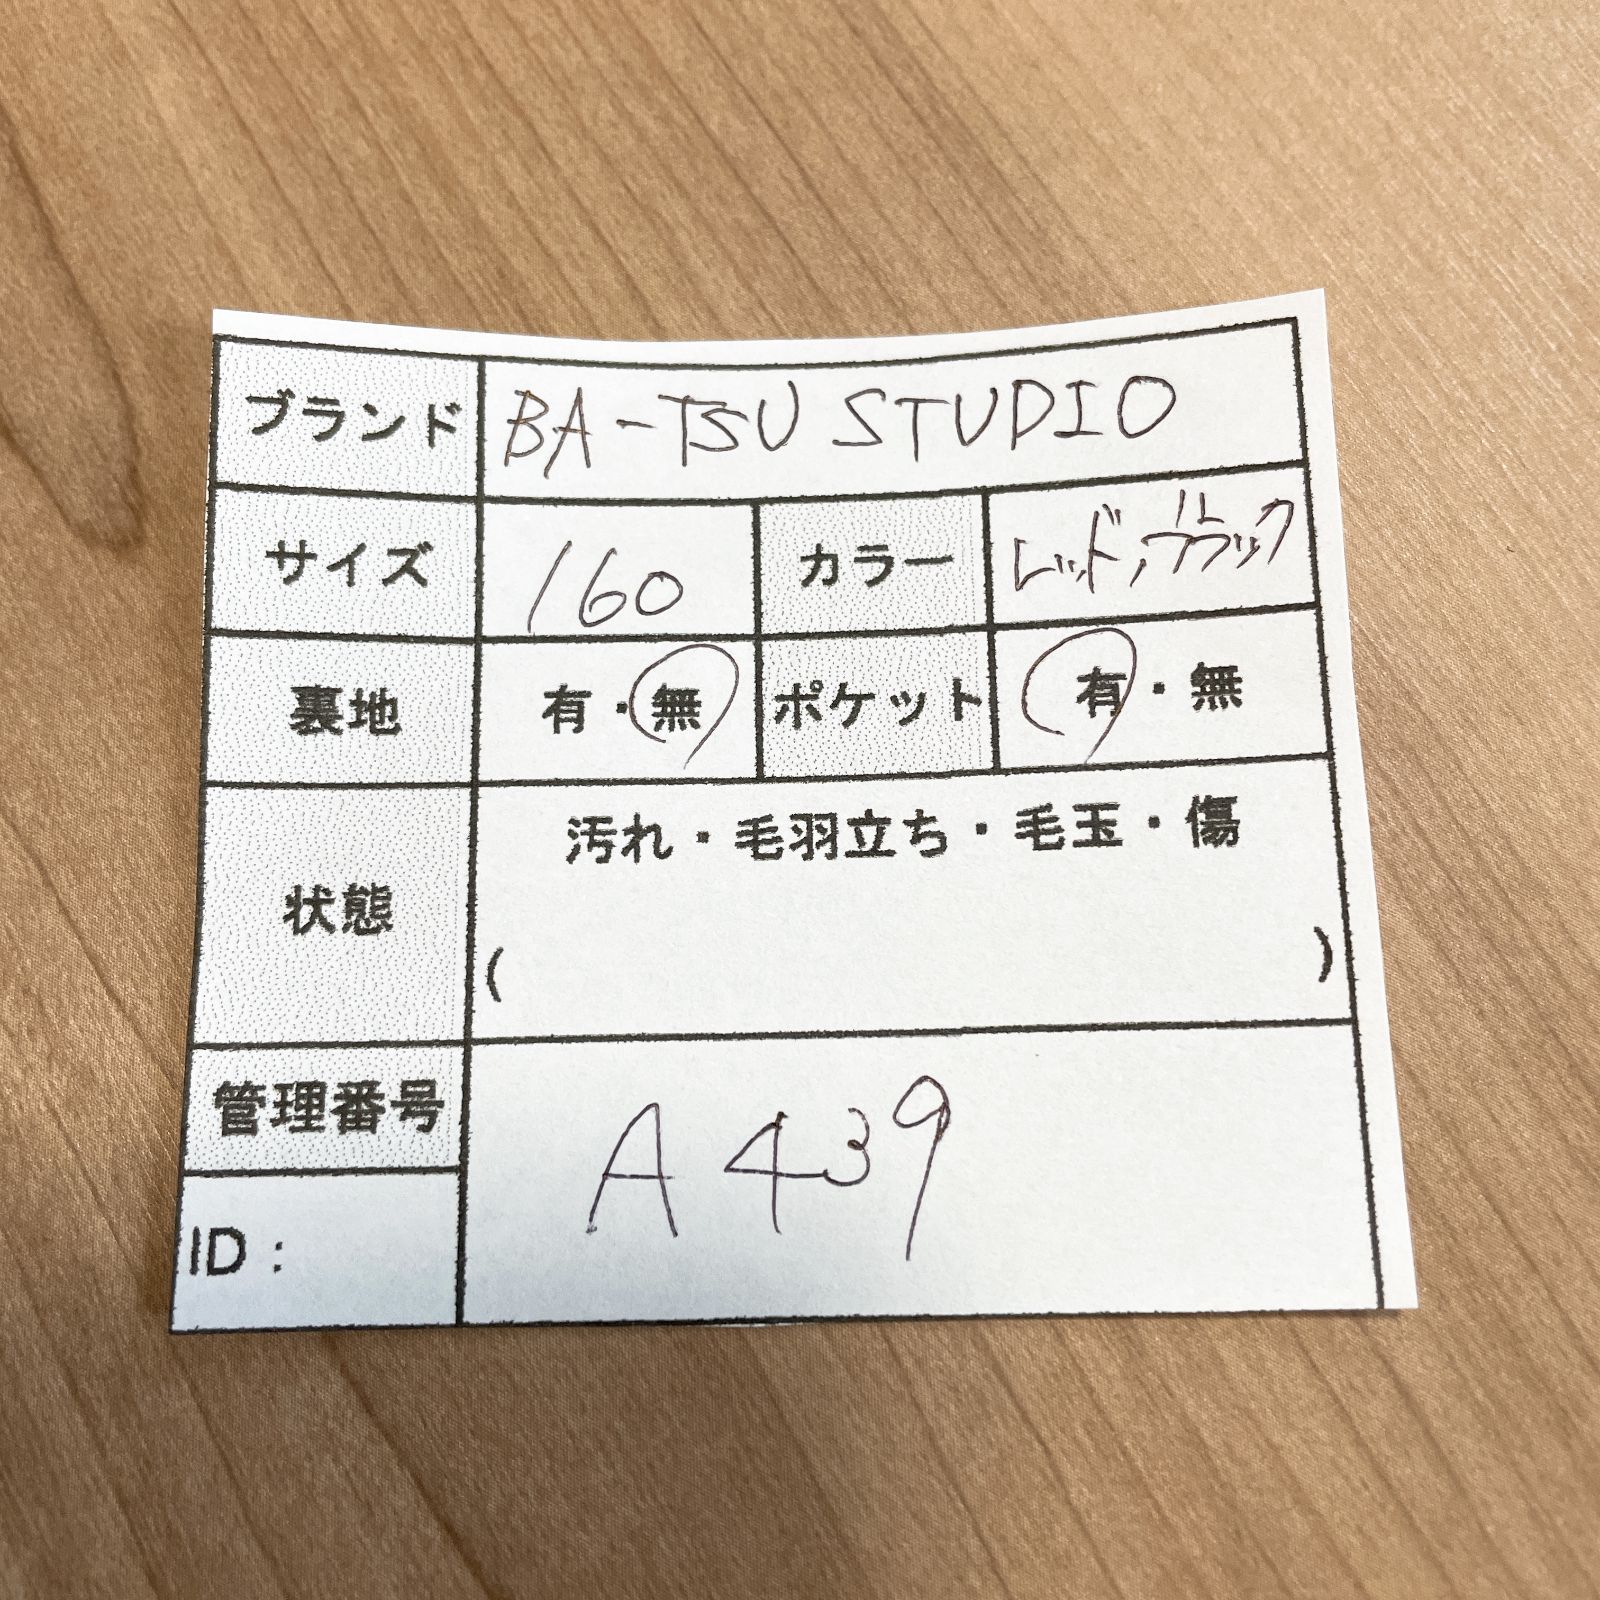 ブランド BA-TSU STUDIO
サイズ 160 カラー レッド,ブラック
裏地 有・無 ポケット 有・無
状態 汚れ・毛羽立ち・毛玉・傷
( )
管理番号 A439
ID: